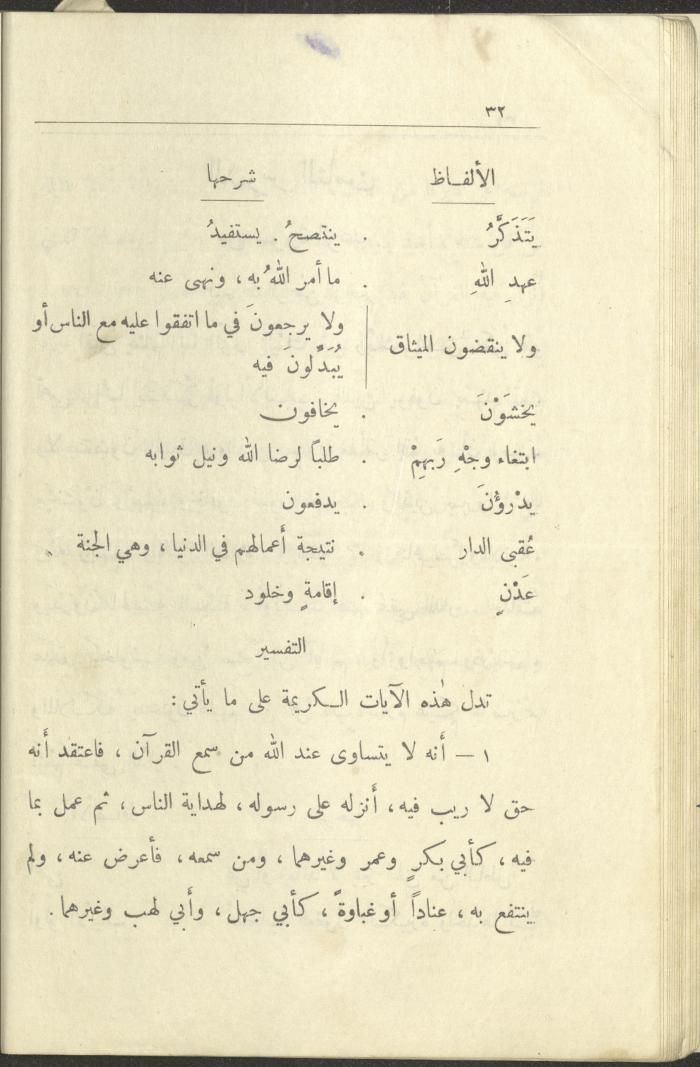 ٣٢
الألفـاظ شرحها
يَتَذَكَّرُ . ينتصحُ . يستفيدُ
عهدِ اللهِ . ما أمر اللهُ به ، ونهى عنه
ولا ينقضون الميثاق ولا يرجعونَ في ما اتفقوا عليه مع الناس أو
يُبَدِّلونَ فيه
يخشَوْنَ . يخافون
ابتغاء وجْهِ رَبهِمْ . طلباً لرضا الله ونيل ثوابه
يدْرؤُنَ . يدفعون
عُقبى الدار . نتيجة أعمالهم في الدنيا ، وهي الجنة .
عَدْنٍ . إقامةٍ وخلود
التفسير
تدل هٰذه الآيات الـكريمة على ما يأتي :
١ – أنه لا يتساوى عند الله من سمع القرآن ، فاعتقد أنه
حق لا ريب فيه ، أنزله على رسوله ، لهداية الناس ، ثم عمل بما
فيه ، كأبي بكرٍ وعمر وغيرهما ، ومن سمعه ، فأعرض عنه ، ولم
ينتفع به ، عناداً أو غباوةً ، كأبي جهل ، وأبي لهب وغيرهما .